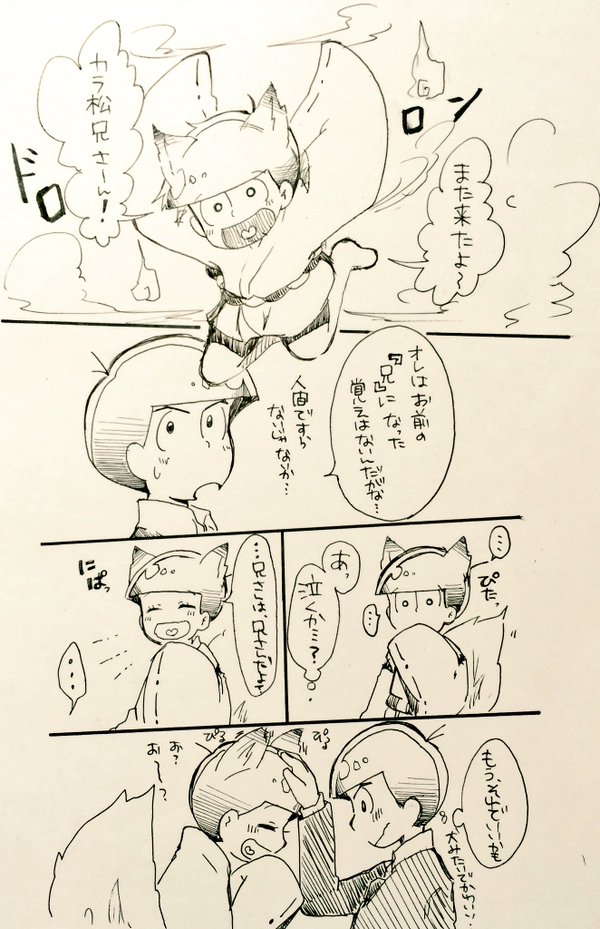 ドロ
ロン
また来たよ〜
カラ松兄さーん!
オレはお前の
『兄』になった
覚えはないんだがな…
人間ですら
ないじゃないか…
…
ぴたっ
…
あっ
泣くか…?
…兄さんは、兄さんだよ
にぱっ
…
もう、それでいいかも
犬みたいでかわいい…
ぴる
ぴる
お?
お〜?